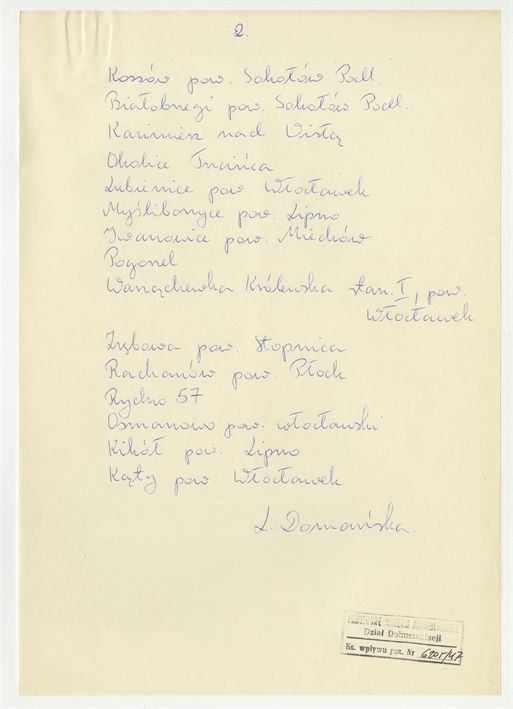 2.
Kossów pow. Sokołów Podl.
Białobrzegi pow. Sokołów Podl.
Kazimierz nad Wisłą
Okolice Tnaińca
Lubienice pow. Włocławek
Myśliborzyce pow. Lipno
Iwanowice pow. Miechów
Pogonel
Warząchewka Królewska stan. I, pow.
Włocławek
Zrębowa pow. Stopnica
Rachanów pow. Płock
Rydno 57
Osmanowo pow. włocławski
Kikół pow. Lipno
Kąty pow. Włocławek
L. Domańska.
PAŃSTWOWE MUZEUM ARCHEOLOGICZNE
Dział Dokumentacji
Ks. wpływu poz. Nr